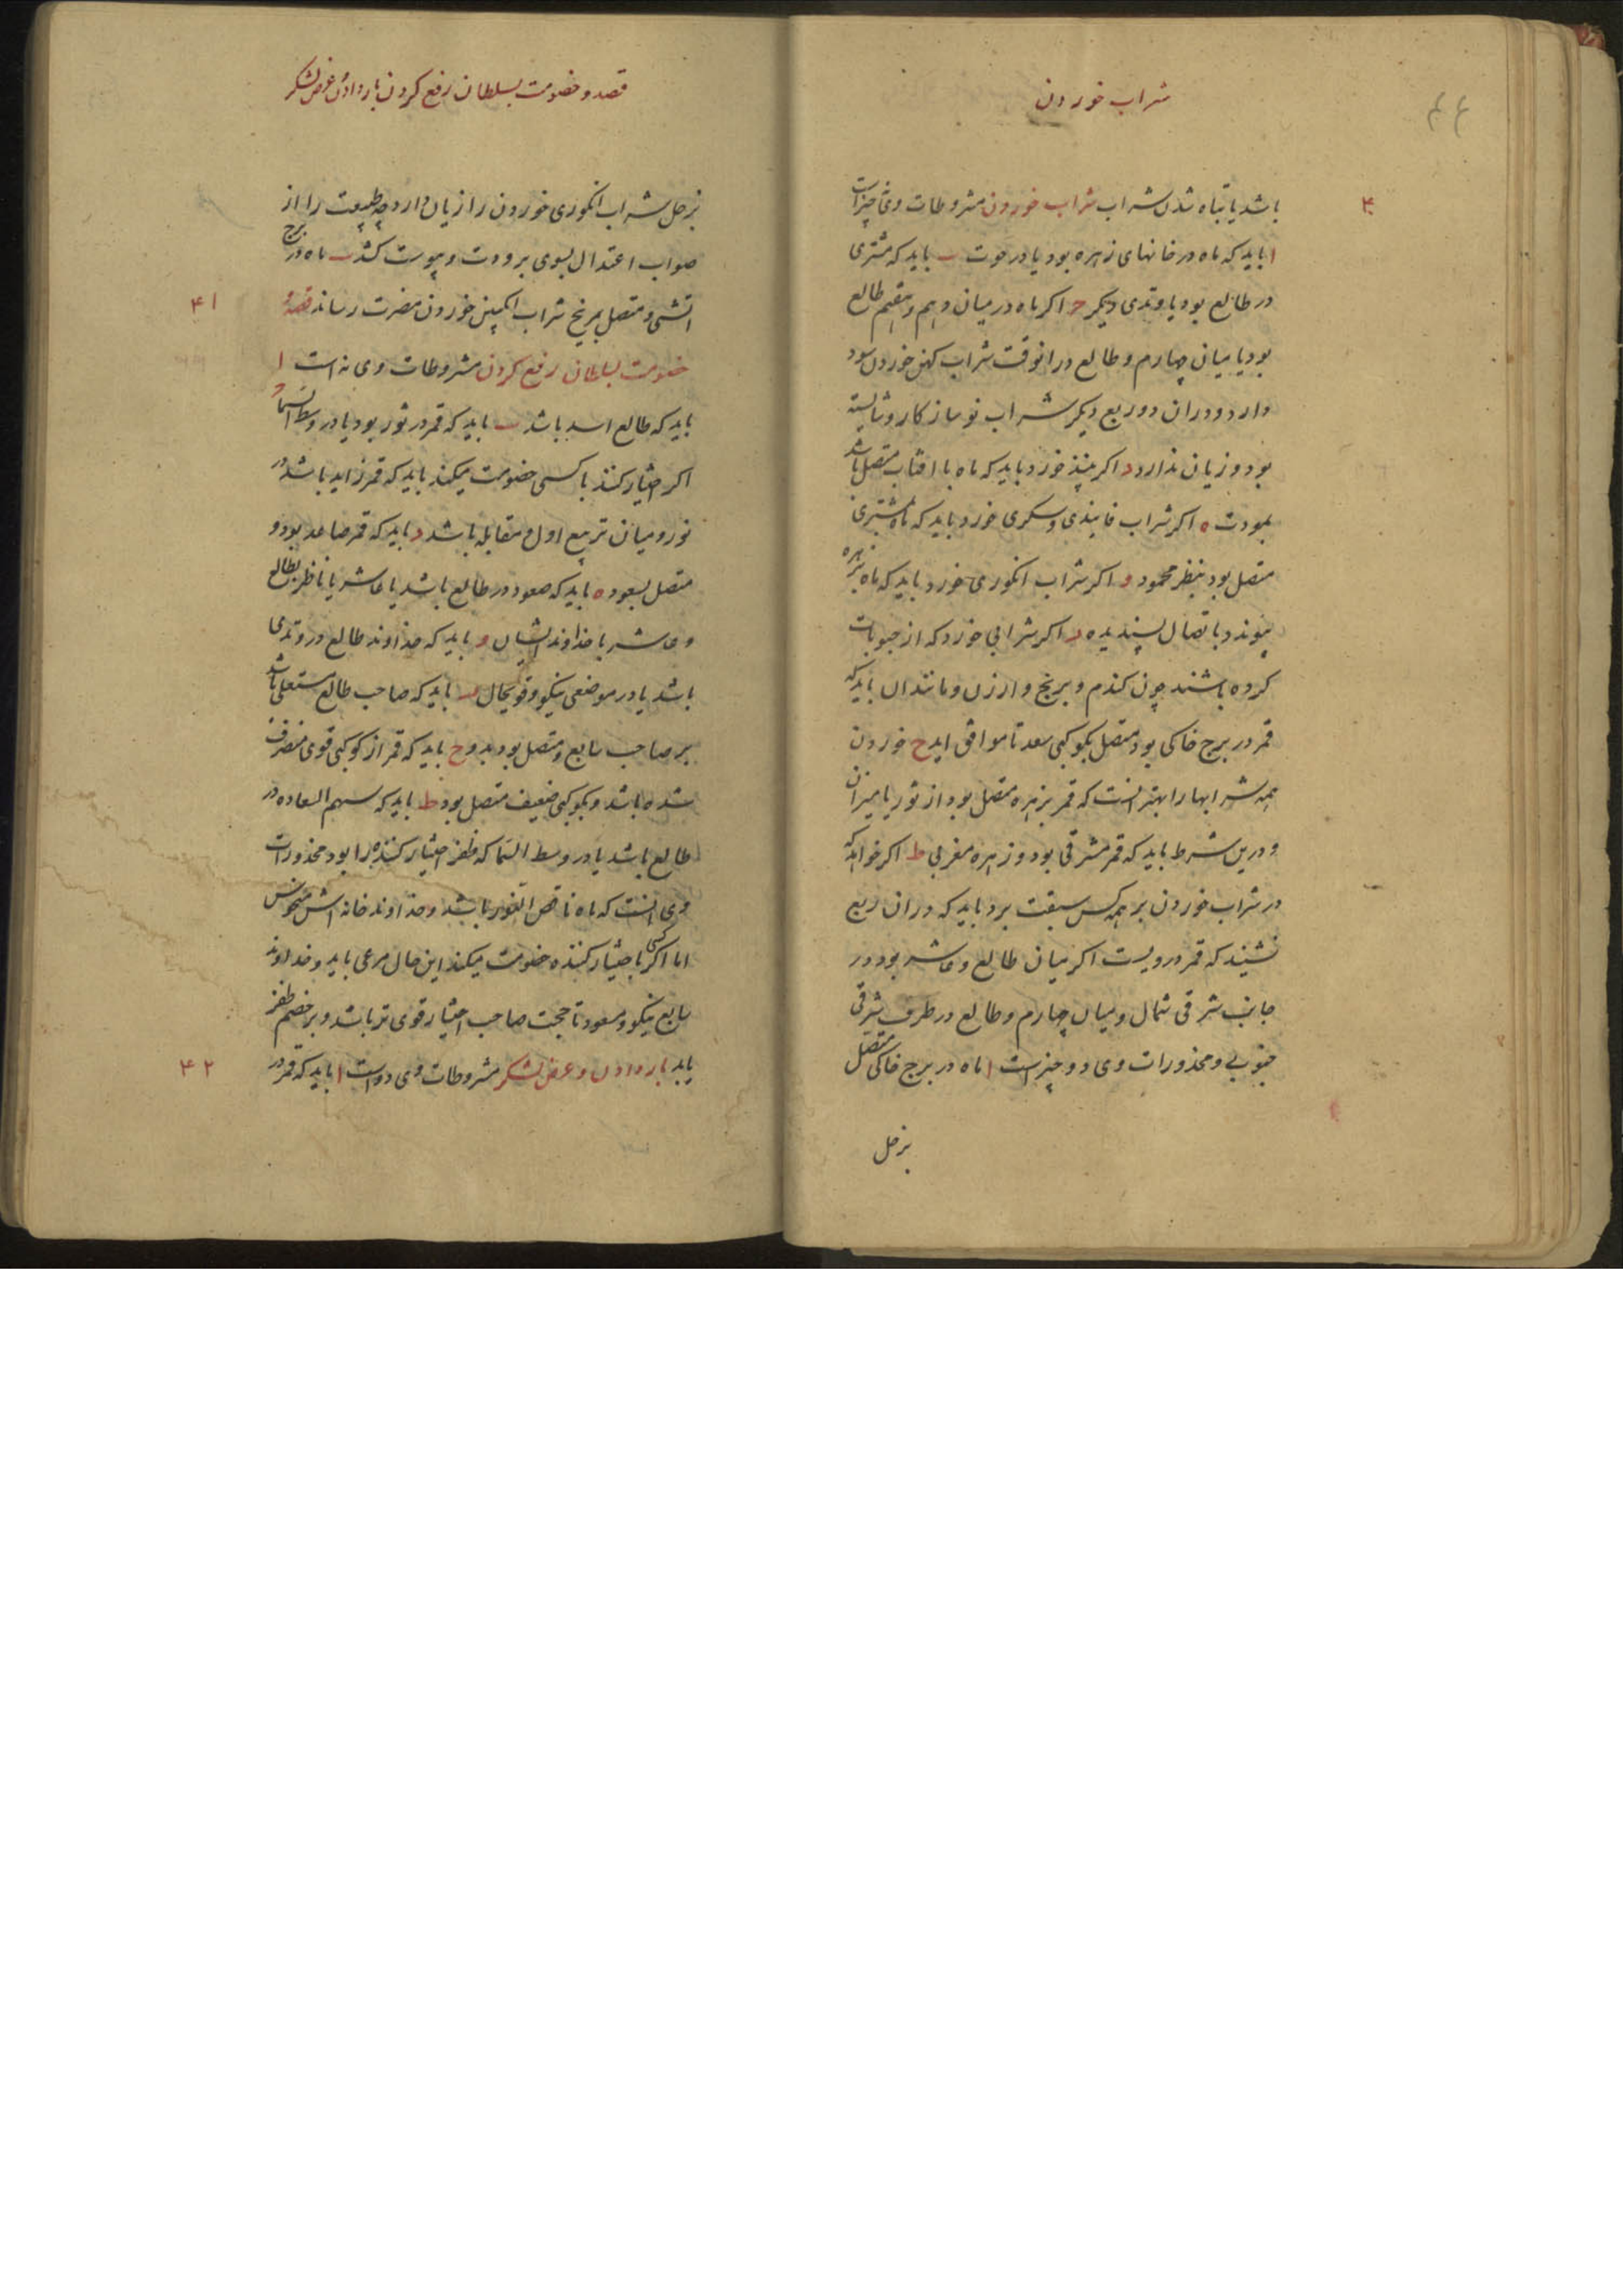 شراب خوردن
۴۴
۴۰
باشد یا تباه شدن شراب شراب خوردن مشروطات وی ط چیزاست
ا باید که ماه در خانهای زهره بود یا در حوت ب باید که مشتری
در طالع بود یا وتدی دیکر ج اکر ماه در میان دهم و هفتم طالع
بود یا میان چهارم و طالع در انوقت شراب کهن خوردن سود
دارد و در ان دو ربع دیکر شراب نو سازکار و شایسته
بود و زیان ندارد د اکر نبیذ خورد باید که ماه با افتاب متصل باشد
بمودت ه اکر شراب فانیذی و سکری خورد باید که ماه بمشتری
متصل بود بنظر محمود و اکر شراب انکوری خورد باید که ماه بزهره
پیوندد باتصال پسندیده ز اکر شرابی خورد که از حبوبات
کرده باشند چون کندم و برنج و ارزن و مانند ان باید که
قمر در برج خاکی بود متصل بکوکبی سعد تا موافق اید ح خوردن
همه شرابها را بهتر انست که قمر بزهره متصل بود از ثور یا میزان
و درین شرط باید که قمر مشرقی بود و زهره مغربی ط اکر خواهد که
در شراب خوردن بر همه کس سبقت برد باید که در ان ربع
نشیند که قمر درویست اکر میان طالع و عاشر بود در
جانب شرقی شمال و میان چهارم و طالع در طرف شرقی
جنوبی و محذورات وی دو چیزاست ا ماه در برج خاکی متصل
بزحل
قصد و خصومت بسلطان رفع کردن بار دادن و عرض لشکر
بزحل شراب انکوری خوردن را زیان دارد چه طبیعت را از
صواب اعتدال بسوی برودت و یبوست کشد ب ماه در برج
اتشی و متصل بمریخ شراب انکبین خوردن مضرت رساند قصه و
۴۱
خصومت بسلطان رفع کردن مشروطات وی نه است ا
باید که طالع اسد باشد ب باید که قمر در ثور بود یا در وسط السما ج
اکر اختیار کننده با کسی خصومت میکند باید که قمر زاید باشد در
نور و میان تربیع اول و مقابله باشد د باید که قمر صاعد بود و
متصل بسعود ه باید که صعود در طالع باشد یا عاشر یا ناظر بطالع
و عاشر یا خداوند ایشان و باید که خداوند طالع در وتدی
باشد یا در موضعی نیکو و قوی حال ز باید که صاحب طالع مستعلی باشد
بر صاحب سابع و متصل بود بدو ح باید که قمر از کوکبی قوی منصرف
شده باشد و بکوکبی ضعیف متصل بود ط باید که سهم السعاده در
طالع باشد یا در وسط السما که ظفر اختیار کننده را بود محذورات
وی انست که ماه ناقص النور باشد و خداوند خانه اش منحوس
اما اکر کسی با اختیار کننده خصومت میکند این حال مرعی باید و خداوند
سابع نیکو و مسعود تا حجت صاحب اختیار قوی تر باشد و بر خصم ظفر
یابد بار دادن و عرض لشکر مشروطات وی دواست ا باید که قمر در
۴۲